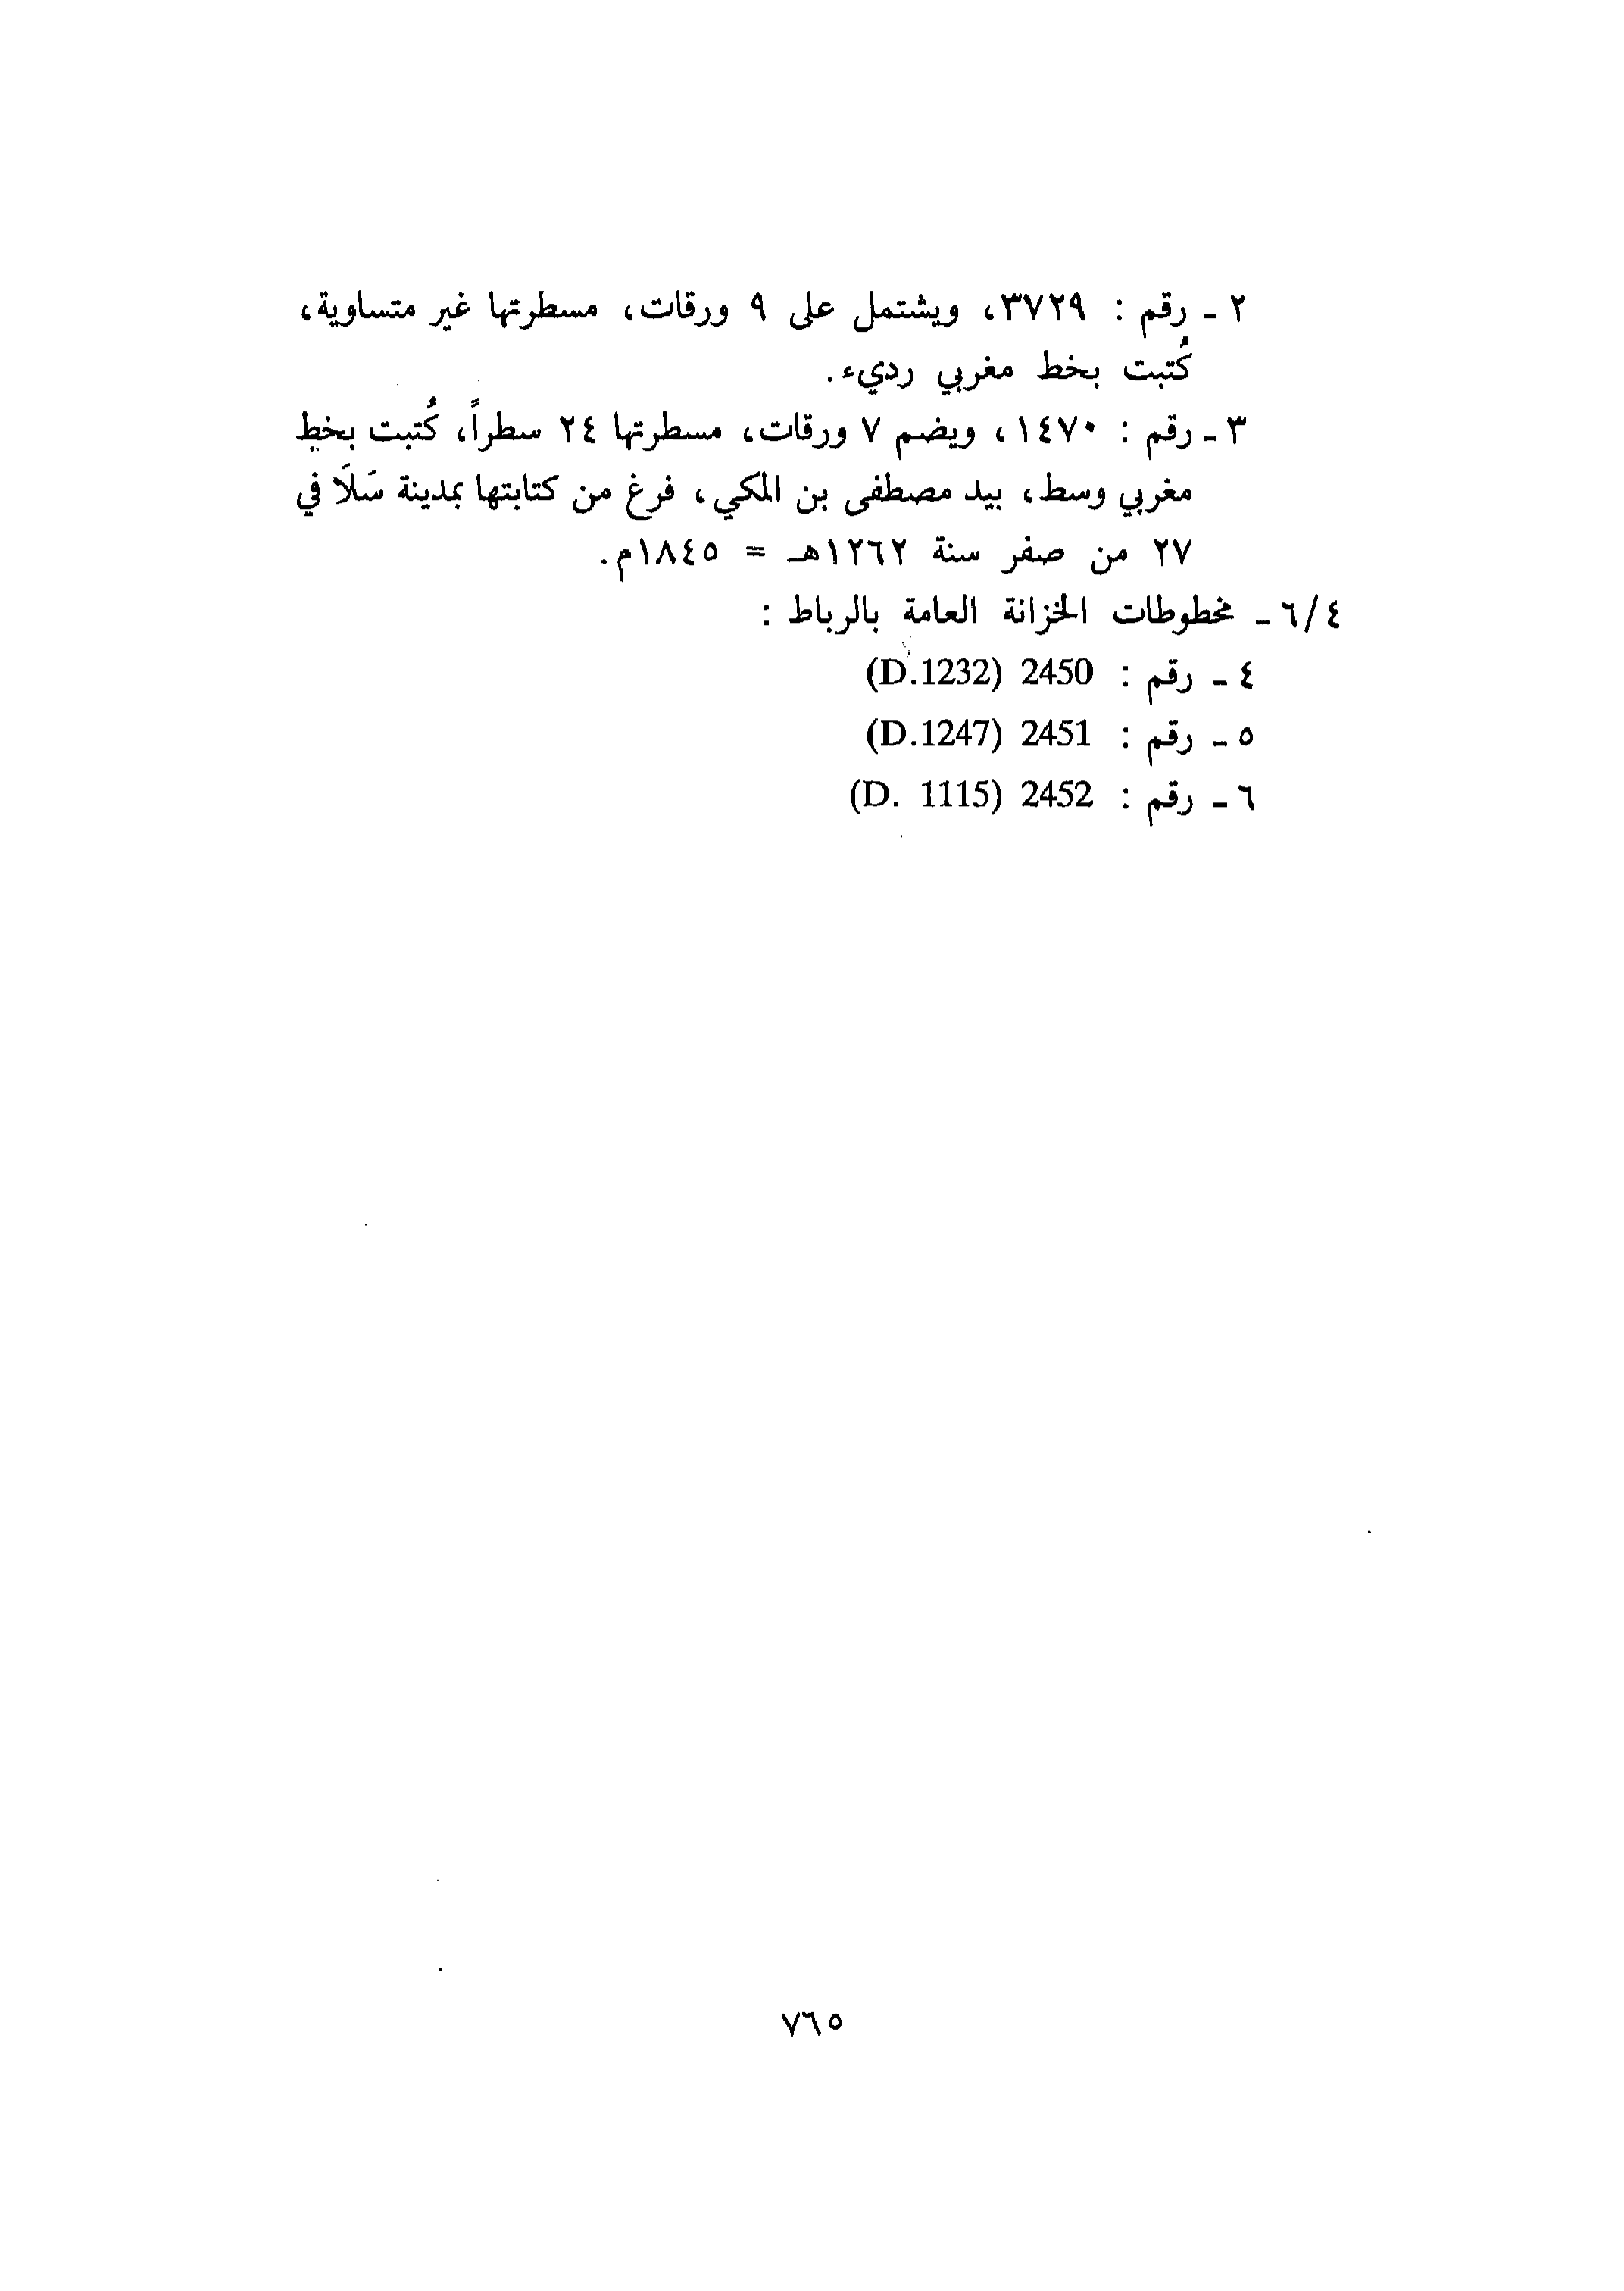 ٢ ـ رقم : ٣٧٢٩، ويشتمل على ٩ ورقات، مسطرتها غير متساوية،
كُتبت بخط مغربي رديء.
٣ ـ رقم : ١٤٧٠، ويضم ٧ ورقات، مسطرتها ٢٤ سطراً، كُتبت بخط
مغربي وسط، بيد مصطفى بن المكي، فرغ من كتابتها بمدينة سَلَا في
٢٧ من صفر سنة ١٢٦٢هـ = ١٨٤٥م.
٦/٤ ـ مخطوطات الخزانة العامة بالرباط :
٤ ـ رقم : 2450 (D.1232)
٥ ـ رقم : 2451 (D.1247)
٦ ـ رقم : 2452 (D. 1115)
٧٦٥